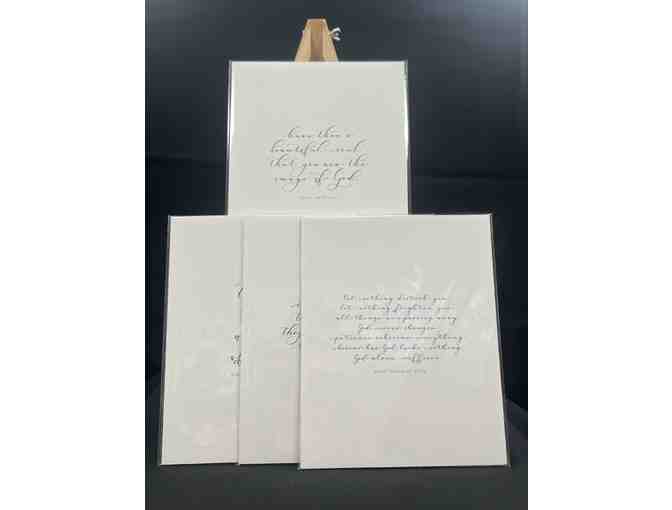 know thou o
beautiful soul
that you are the
image of God.
they
let nothing disturb you,
let nothing frighten you,
all things are passing away.
God never changes.
patience obtains everything
whoever has God lacks nothing
God alone suffices.
SAINT TERESA OF AVILA